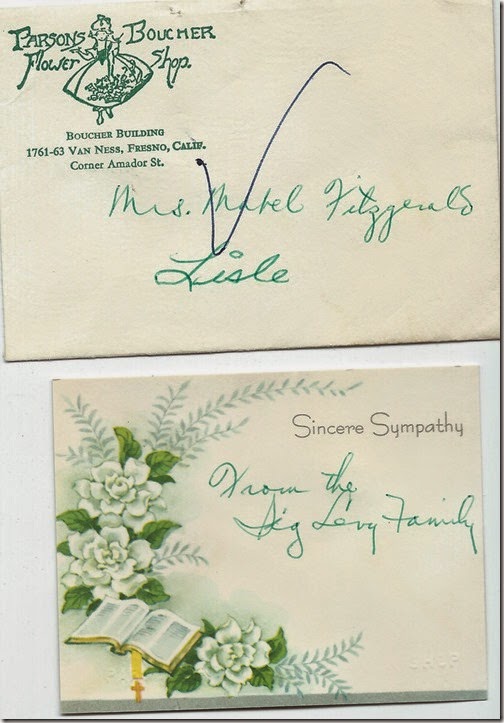 Parsons Boucher
Flower Shop.
Boucher Building
1761-63 Van Ness, Fresno, Calif.
Corner Amador St.
Mrs. Mabel Fitzgerald
Lisle
Sincere Sympathy
From the
Sig Levy Family